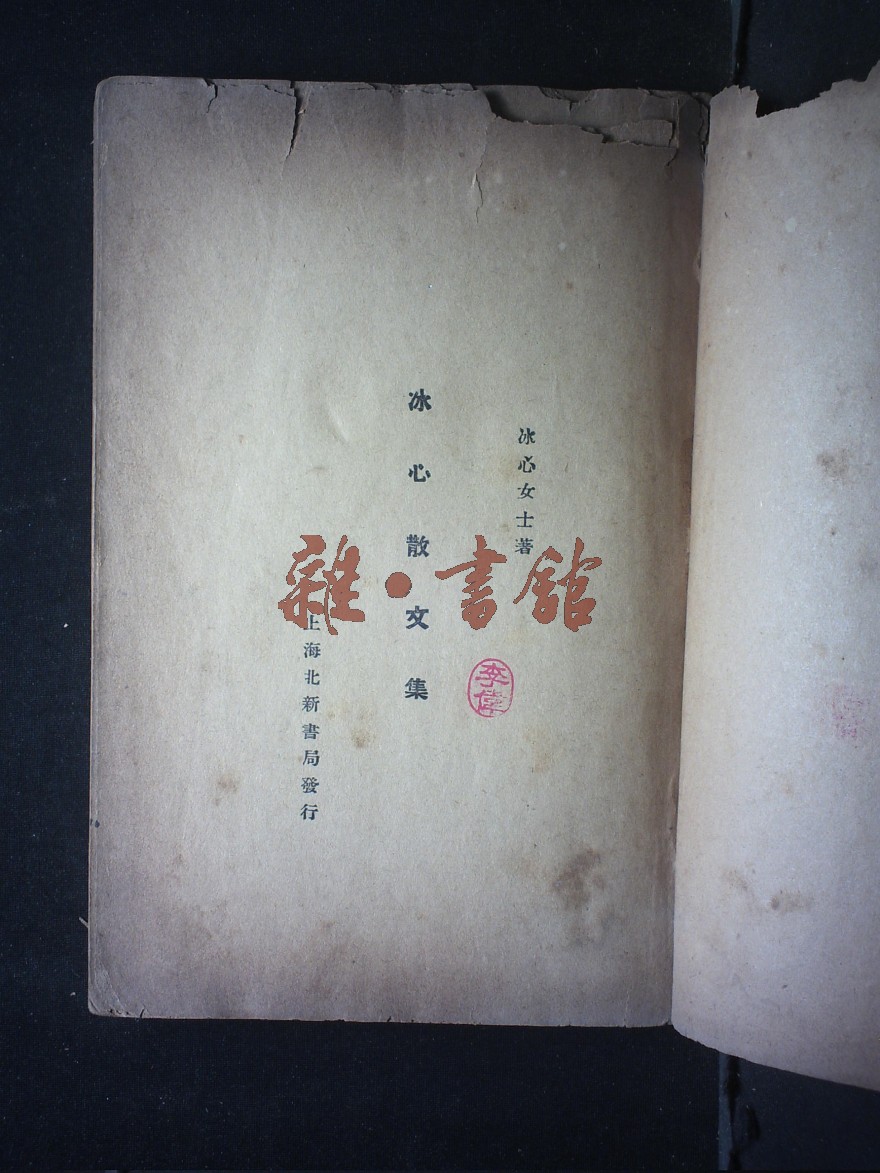 冰心女士著
冰心散文集
上海北新書局發行
雜·書館
李偉